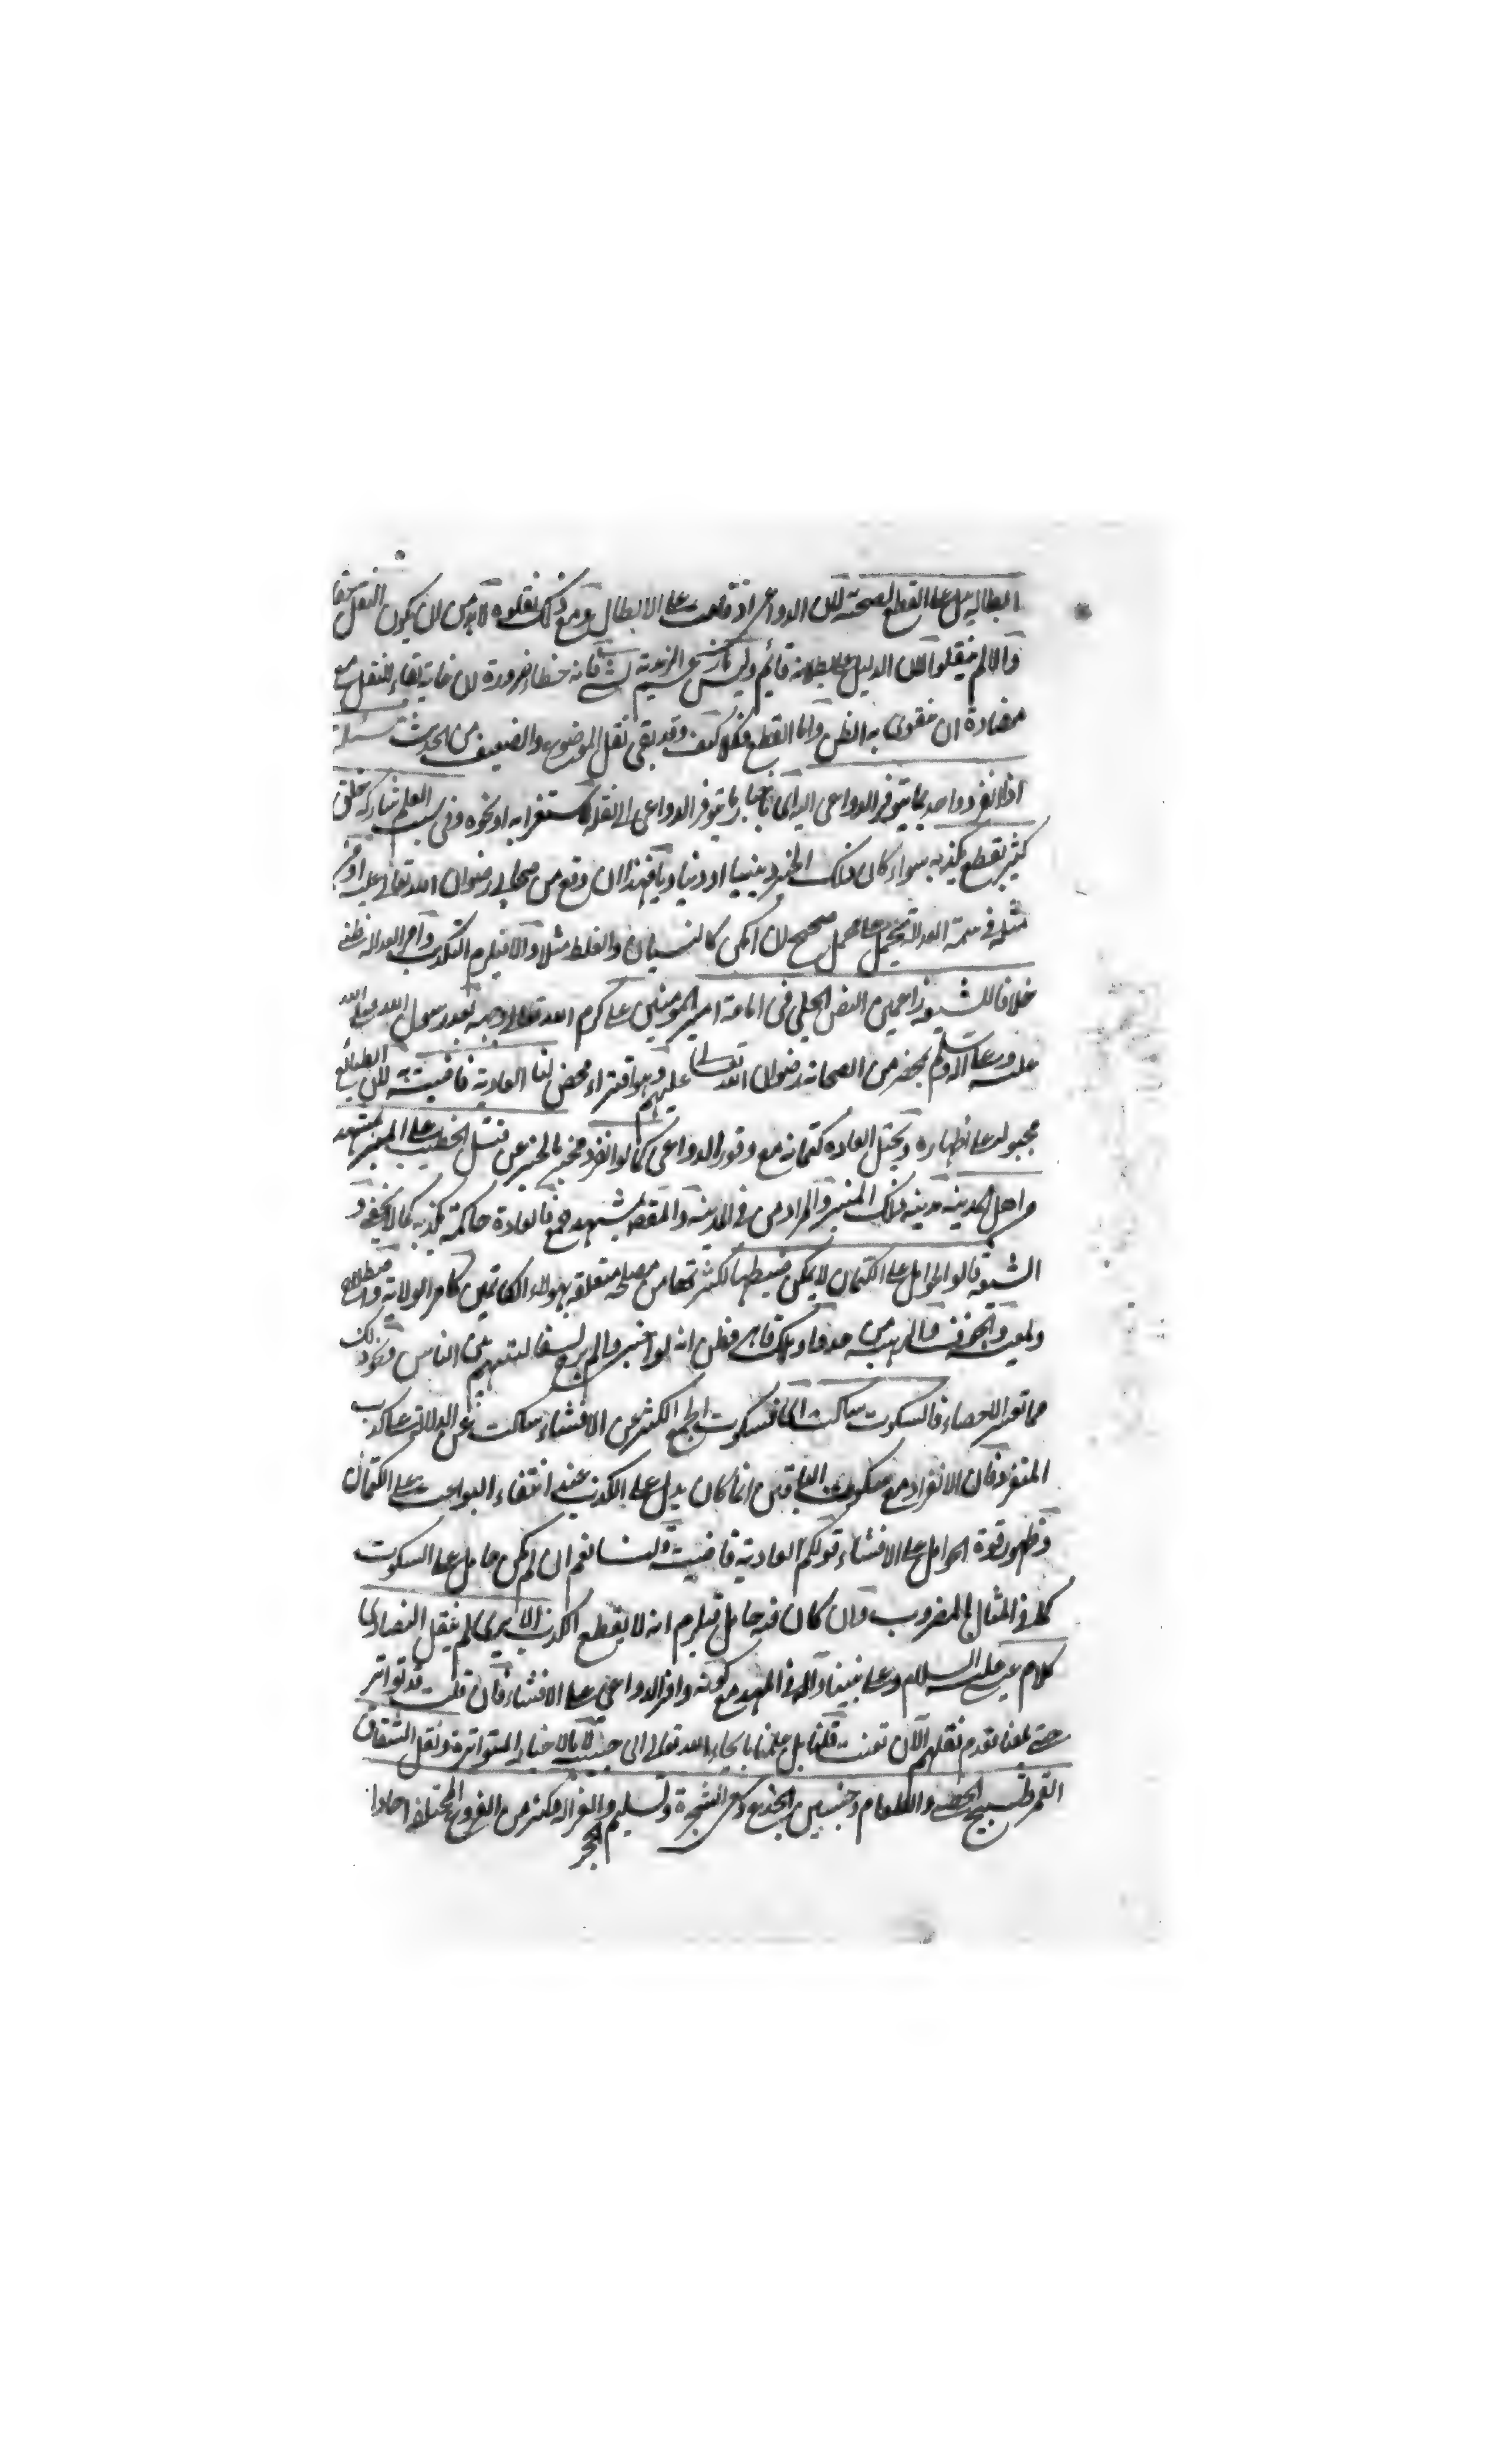 ابطاله يدل على القطع لصحته لان الدواعى اذ قامت على الابطال ومع ذلك نقلوه لابد من ان يكون النقل حقا
والا لم ينقلوا لان الدليل على بطلانه قائم وليس بشىء فانه خطاء ضرورة لان غاية بقاء النقل مع
مضادة ان يقوى به الظن واما القطع فكلا كيف وقد بقى نقل الموضوع والضعيف من الحديث مسئلة
اذا انفرد واحد بما يتوفر الدواعى اليه اى باخبار ما يتوفر الدواعى الى نقله لاستغرابه او نحوه وفى سبب العلم شاركه خلق
كثير يقطع بكذبه سواء كان ذلك الخبر دينيا او دنياويا فهذا ان وقع من صحابى رضوان الله تعالى عليه او من
مثله فى سمة العدالة يحمل على محمل صحيح ان امكن كالنسيان والغلط مثلا والا فيلزم التكذيب وامر العدالة ظنى
خلافا للشيعة زاعمين النص الجلى فى امامة امير المومنين على كرم الله تعالى وجهه بعد رسول الله صلى الله
عليه وعلى اله وسلم بمحضر من الصحابة رضوان الله تعالى عليهم وهو افتراء محض لنا العادة قاضية به لان الطبائع
مجبولة على اظهاره وتحيل العادة كتمانه مع وفور الدواعى كما لو انفرد مخبر بالخبر عن قتل الخطيب على المنبر بمشهد
من اهل المدينة مدينة ذلك المنبر والمراد من فى المدينة والمقصد مشهد جمع فالعادة حاكمة بكذبه كما لا يخفى و
الشيعة قالوا الحوامل على الكتمان لا يمكن ضبطها لكثرتها من مصلحة متعلقة بهولاء الكاتمين كامر الولاية واصطلاح
المعيشة والخوف والرهبة من عدو او ملك قاهر فظن انه لو اخبر
مما تعسر الاحصاء فالسكوت ساكت اى فسكوت الجمع الكثير عن الافشاء ساكت عن الدلالة على كذب
المنفرد فان الانفراد مع سكوت الباقين انما كان يدل على الكذب عند انتفاء البواعث على الكتمان
وظهور قوة الحوامل على الافشاء قولكم العادية قاضية قلنا نعم ان لم يكن حامل على السكوت
كما فى المثال المضروب وان كان فيه حامل فيلزم انه لا يقطع الكذب الا يرى لم ينقل النصارى
كلام عيسى عليه السلام وعلى نبينا واله فى المهد مع كونه وافر الدواعى على الافشاء فان قلت قد تواتر
حتى بلغنا بعدم نقلهم الان تعنت قلنا بل علمنا بايحاء الله تعالى الى حبيبه لا بالاخبار المتواترة ونقل انشقاق
القمر وتسبيح الحصى والطعام وحنين الجذع وسعى الشجرة وتسليم الحجر والغزالة وكثير من الفروع المختلفة احادا